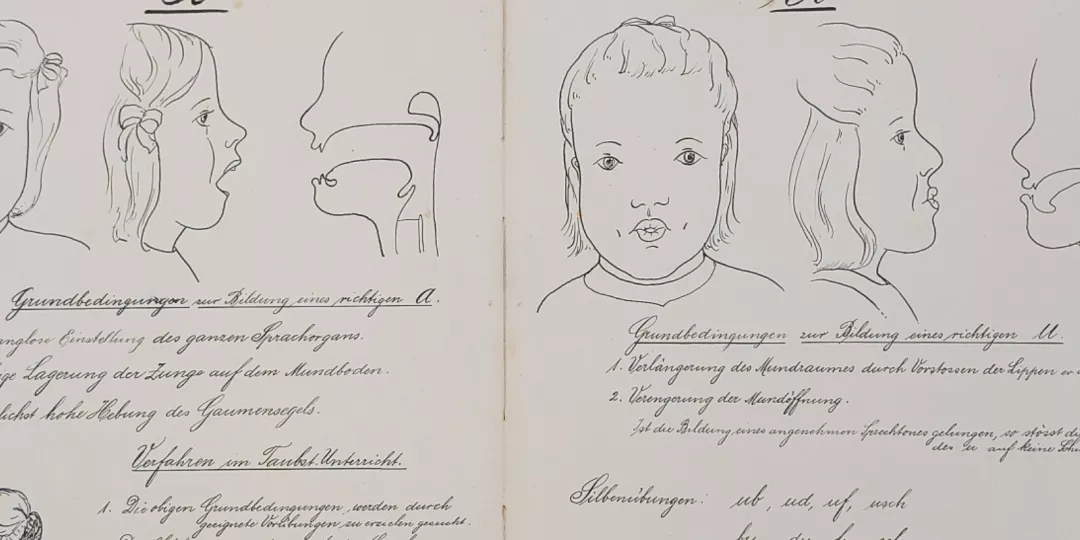 Grundbedingungen zur Bildung eines richtigen A.
Einstellung des ganzen Sprachorgans.
Lagerung der Zunge auf dem Mundboden.
hohe Hebung des Gaumensegels.
Verfahren im Taubst. Unterricht.
1. Die obigen Grundbedingungen werden durch
geeignete Vorübungen zu erzielen gesucht.
Grundbedingungen zur Bildung eines richtigen U.
1. Verlängerung des Mundraumes durch Vorstossen der Lippen
2. Verengerung der Mundöffnung.
Ist die Bildung eines angenehmen Sprechtones gelungen, so stösst
des u auf keine
Silbenübungen: ub, ud, uf, usch